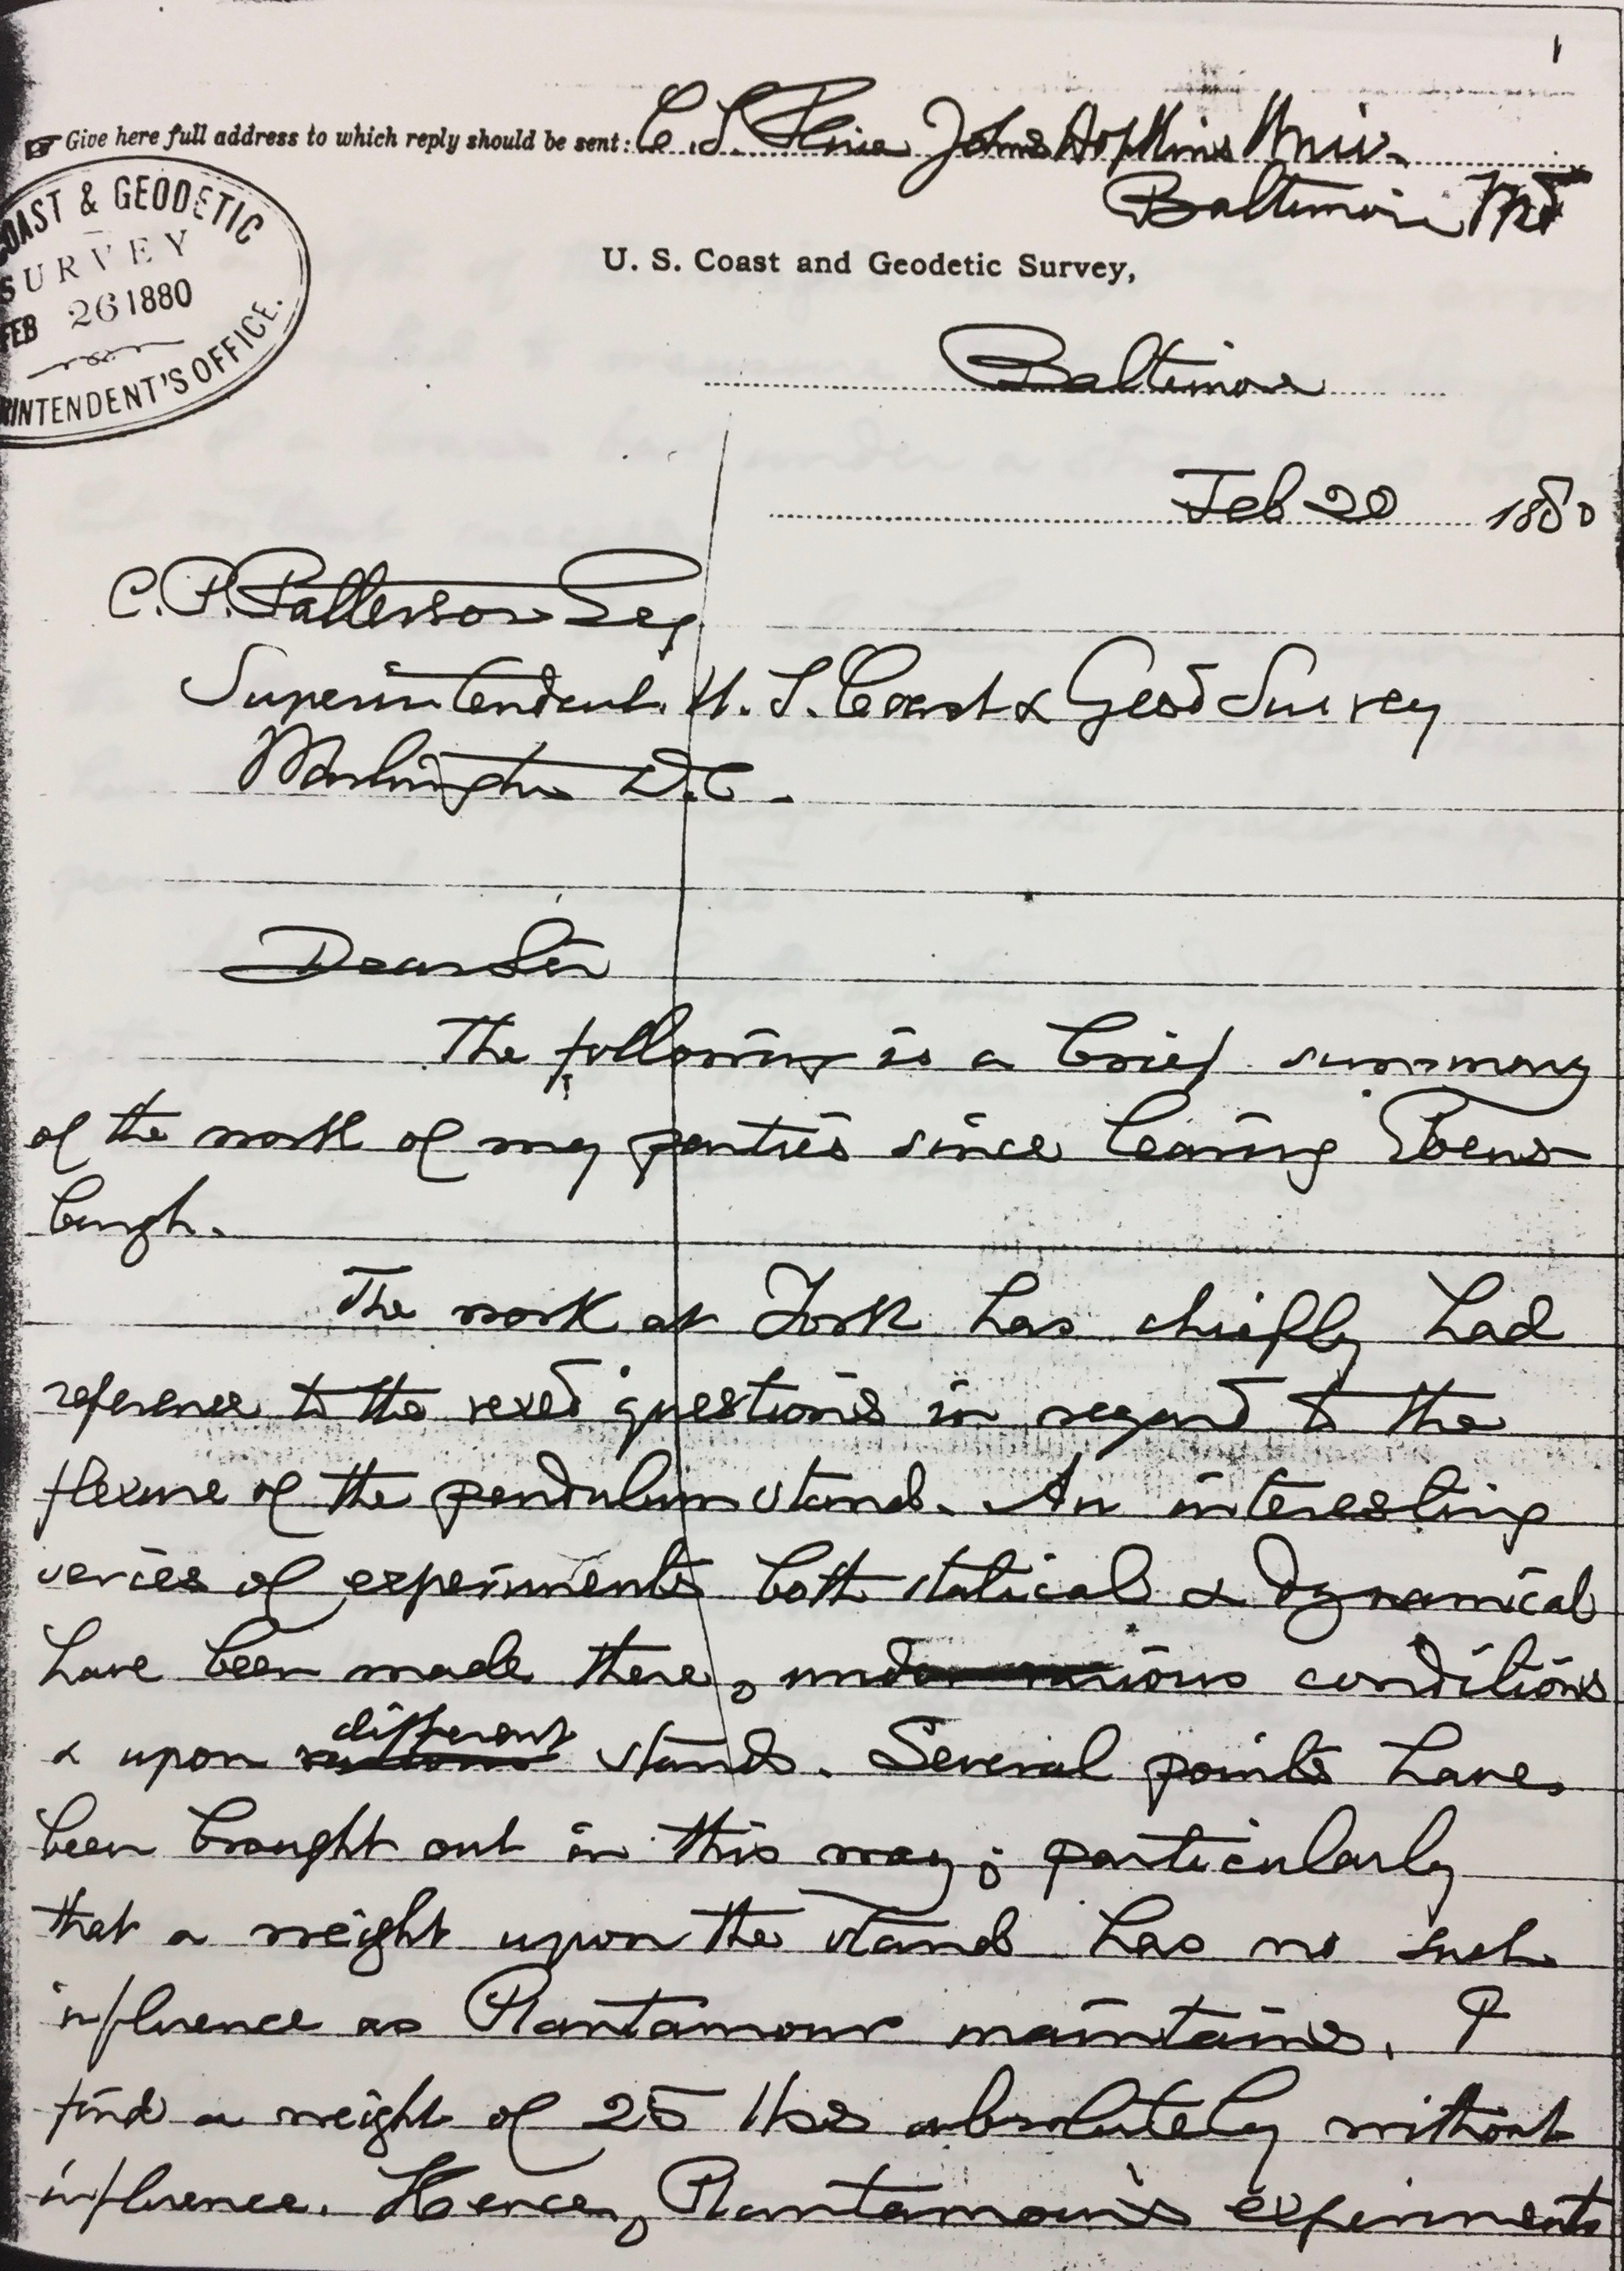 1
☞ Give here full address to which reply should be sent: C. S. Peirce Johns Hopkins Univ.
Baltimore Md
COAST & GEODETIC
SURVEY
FEB 26 1880
RINTENDENT'S OFFICE.
U. S. Coast and Geodetic Survey,
Baltimore
Feb 20 1880
C. P. Patterson Esq.
Superintendent U. S. Coast & Geod Survey
Washington D.C.
Dear Sir
The following is a brief summary
of the work of my parties since leaving Ebens-
burgh.
The work at York has chiefly had
reference to the vexed questions in regard to the
flexure of the pendulum stand. An interesting
series of experiments both statical & dynamical
have been made there, under various conditions
& upon different stands. Several points have
been brought out in this way; particularly
that a weight upon the stand has no such
influence as Plantamour maintains. I
find a weight of 25 lbs absolutely without
influence. Hence, Plantamour's experiments